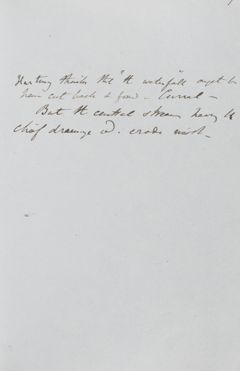 Hartung thinks that "the waterfall" ought to
have cut back & found – Curral –
But the central stream having the
chief drainage wd. erode most –